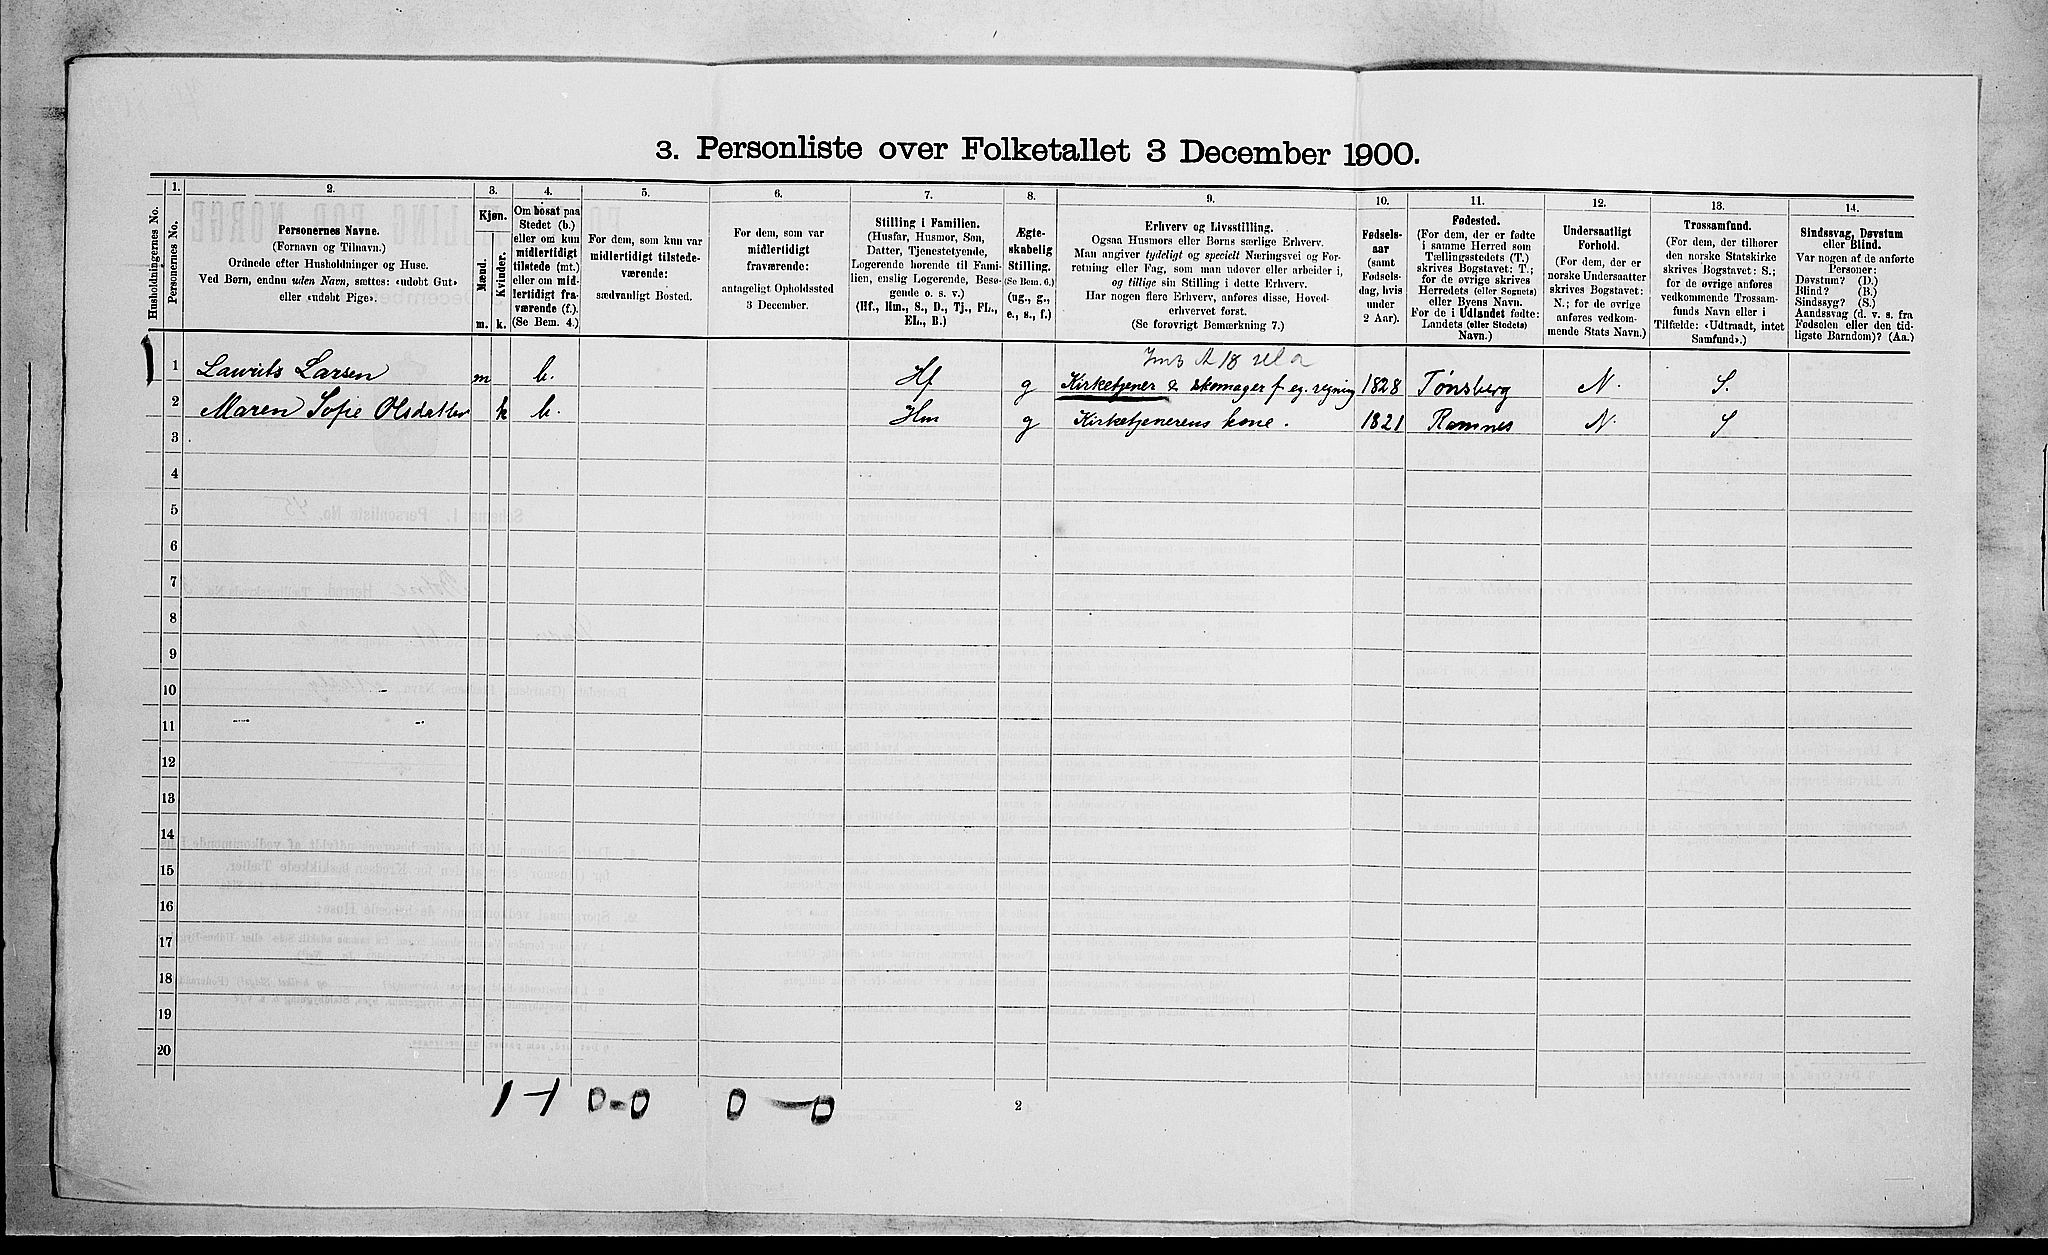 3. Personliste over Folketallet 3 December 1900.
Husholdningernes No.
1.
Personernes No.
2.
Personernes Navne.
(Fornavn og Tilnavn.)
Ordnede efter Husholdninger og Huse.
Ved Børn, endnu uden Navn, sættes: «udøbt Gut»
eller «udøbt Pige».
3.
Kjøn.
Mænd.
Kvinder.
m.
k.
4.
Om bosat paa
Stedet (b.)
eller om kun
midlertidigt
tilstede (mt.)
eller om mid-
lertidigt fra-
værende (f.).
(Se Bem. 4.)
5.
For dem, som kun var
midlertidigt tilstede-
værende:
sædvanligt Bosted.
6.
For dem, som var
midlertidigt
fraværende:
antageligt Opholdssted
3 December.
7.
Stilling i Familien.
(Husfar, Husmor, Søn,
Datter, Tjenestetyende,
Logerende hørende til Fami-
lien, enslig Logerende, Besø-
gende o. s. v.)
(Hf., Hm., S., D., Tj., FL.,
EL., B.)
8.
Ægte-
skabelig
Stilling.
(Se Bem. 6.)
(ug., g.,
e., s., f.)
9.
Erhverv og Livsstilling.
Ogsaa Husmors eller Børns særlige Erhverv.
Man angiver tydeligt og specielt Næringsvei og For-
retning eller Fag, som man udøver eller arbeider i,
og tillige sin Stilling i dette Erhverv.
Har nogen flere Erhverv, anføres disse, Hoved-
erhvervet først.
(Se forøvrigt Bemærkning 7.)
10.
Fødsels-
aar
(samt
Fødsels-
dag, hvis
under
2 Aar).
11.
Fødested.
(For dem, der er fødte
i samme Herred som
Tællingsstedets (T.)
skrives Bogstavet: T.;
for de øvrige skrives
Herredets (eller Sognets)
eller Byens Navn.
For de i Udlandet fødte:
Landets (eller Stedets)
Navn.)
12.
Undersaatligt
Forhold.
(For dem, der er
norske Undersaatter
skrives Bogstavet:
N.; for de øvrige
anføres vedkom-
mende Stats Navn.)
13.
Trossamfund.
(For dem, der tilhører
den norske Statskirke
skrives Bogstavet: S.;
for de øvrige anføres
vedkommende Trossam-
funds Navn eller i
Tilfælde: «Udtraadt, intet
Samfund».)
14.
Sindssvag, Døvstum
eller Blind.
Var nogen af de anførte
Personer:
Døvstum? (D.)
Blind? (B.)
Sindssyg? (S.)
Aandssvag (d. v. s. fra
Fødselen eller den tid-
ligste Barndom)? (Aa.)
1 Laurits Larsen m b. Hf g Kirketjener & skomager f. eg. regning 1828 Tønsberg N. S.
2 Maren Sofie Olsdatter k b. Hm g Kirketjenerens kone. 1821 Ramnes N. S
3
4
5
6
7
8
9
10
11
12
13
14
15
16
17
18
19
20
1-1 0-0 0-0
2